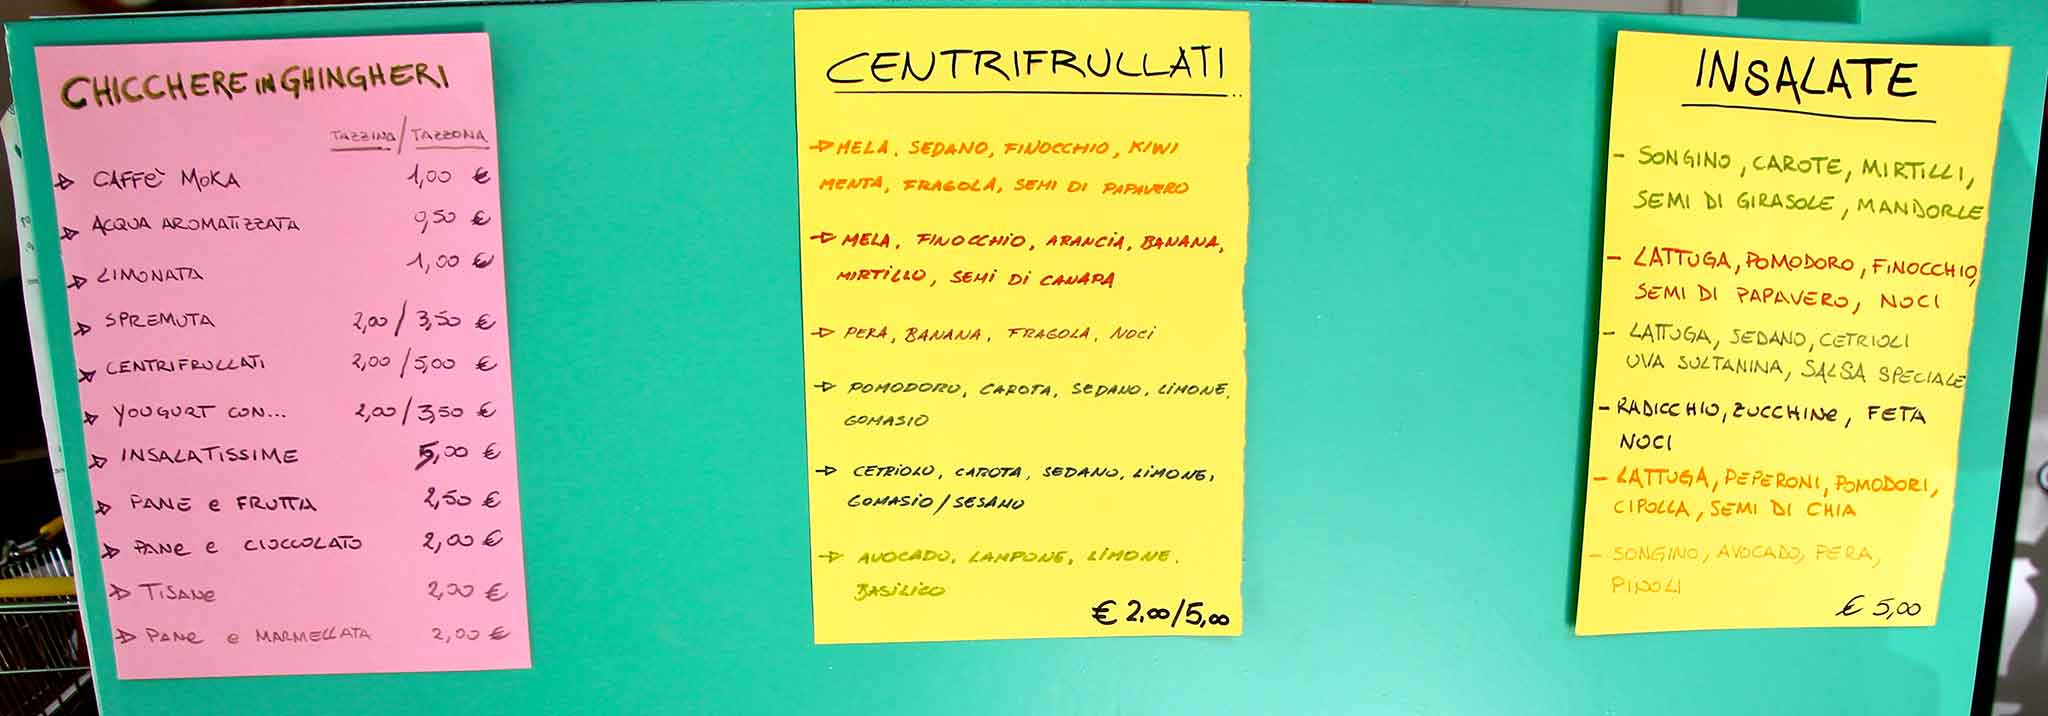 CHICCHERE IN GHINGHERI
TAZZINA / TAZZONA
CAFFÈ MOKA 1,00 €
ACQUA AROMATIZZATA 0,50 €
LIMONATA 1,00 €
SPREMUTA 2,00 / 3,50 €
CENTRIFRULLATI 2,00 / 5,00 €
YOUGURT CON... 2,00 / 3,50 €
INSALATISSIME 5,00 €
PANE e FRUTTA 2,50 €
PANE e CIOCCOLATO 2,00 €
TISANE 2,00 €
PANE e MARMELLATA 2,00 €
CENTRIFRULLATI
MELA, SEDANO, FINOCCHIO, KIWI
MENTA, FRAGOLA, SEMI DI PAPAVERO
MELA, FINOCCHIO, ARANCIA, BANANA,
MIRTILLO, SEMI DI CANAPA
PERA, BANANA, FRAGOLA, NOCI
POMODORO, CAROTA, SEDANO, LIMONE,
GOMASIO
CETRIOLO, CAROTA, SEDANO, LIMONE,
GOMASIO / SESAMO
AVOCADO, LAMPONE, LIMONE,
BASILICO
€ 2,00/5,00
INSALATE
- SONGINO, CAROTE, MIRTILLI,
SEMI DI GIRASOLE, MANDORLE
- LATTUGA, POMODORO, FINOCCHIO,
SEMI DI PAPAVERO, NOCI
- LATTUGA, SEDANO, CETRIOLI
UVA SULTANINA, SALSA SPECIALE
- RADICCHIO, ZUCCHINE, FETA
NOCI
- LATTUGA, PEPERONI, POMODORI,
CIPOLLA, SEMI DI CHIA
- SONGINO, AVOCADO, PERA,
PINOLI
€ 5,00